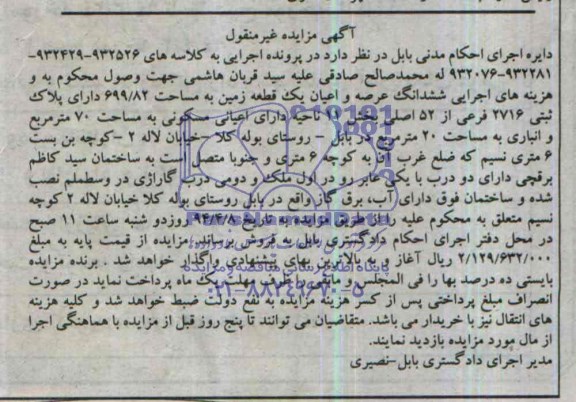 آگهی مزایده غیرمنقول
دایره اجرای احکام مدنی بابل در نظر دارد در پرونده اجرایی به کلاسه های ۹۳۲۵۲۶-۹۳۲۴۲۹-
۹۳۲۲۸۱-۹۳۲۰۷۶ له محمدصالح صادقی علیه سید قربان هاشمی جهت وصول محکوم به و
هزینه های اجرایی ششدانگ عرصه و اعیان یک قطعه زمین به مساحت ۶۹۹/۸۲ دارای پلاک
ثبتی ۲۷۱۶ فرعی از ۵۲ اصلی بخش ۱۱ ناحیه دارای اعیانی مسکونی به مساحت ۷۰ مترمربع
و انباری به مساحت ۲۰ مترمربع در بابل - روستای بوله کلا -خیابان لاله ۲ -کوچه بن بست
۶ متری نسیم که ضلع غرب آن به کوچه ۶ متری و جنوبا متصل است به ساختمان سید کاظم
برقچی دارای دو درب با یکی عابر رو در اول ملک و دومی درب گاراژی در وسطملم نصب
شده و ساختمان فوق دارای آب، برق گاز واقع در بابل روستای بوله کلا خیابان لاله ۲ کوچه
نسیم متعلق به محکوم علیه را از طریق مزایده به تاریخ ۹۴/۴/۸ روزدو شنبه ساعت ۱۱ صبح
در محل دفتر اجرای احکام دادگستری بابل به فروش برساند. مزایده از قیمت پایه به مبلغ
۲/۱۲۹/۶۳۲/۰۰۰ ریال آغاز و به بالاترین بهای پیشنهادی واگذار خواهد شد . برنده مزایده
بایستی ده درصد بها را فی المجلس و مابقی را طی مهلت یک ماه پرداخت نماید در صورت
انصراف مبلغ پرداختی پس از کسر هزینه مزایده به نفع دولت ضبط خواهد شد و کلیه هزینه
های انتقال نیز با خریدار می باشد. متقاضیان می توانند تا پنج روز قبل از مزایده با هماهنگی اجرا
از مال مورد مزایده بازدید نمایند.
مدیر اجرای دادگستری بابل-نصیری
پایگاه اطلاع رسانی مناقصه و مزایده
۰۲۱-۸۸۳۴۹۶۷۰-۵